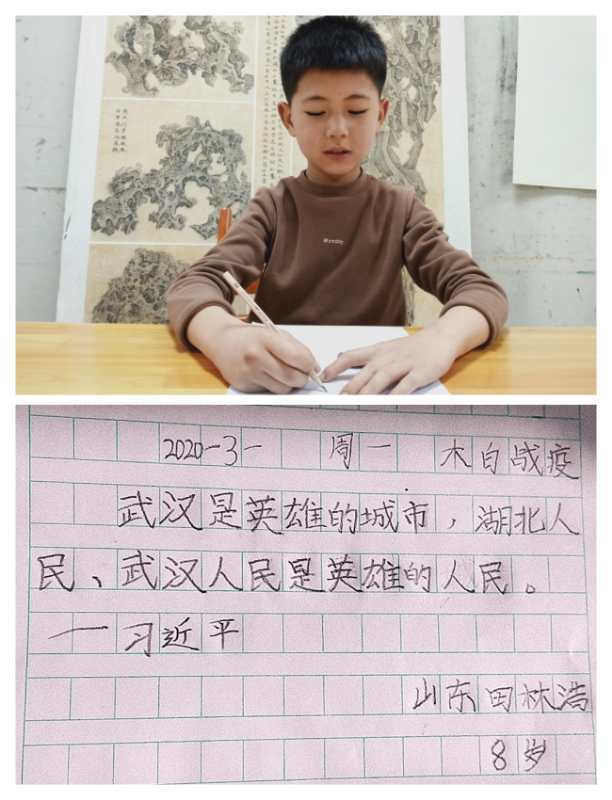 2020-3- 周一 木白战疫
武汉是英雄的城市，湖北人
民、武汉人民是英雄的人民。
——习近平
山东田林浩
8岁